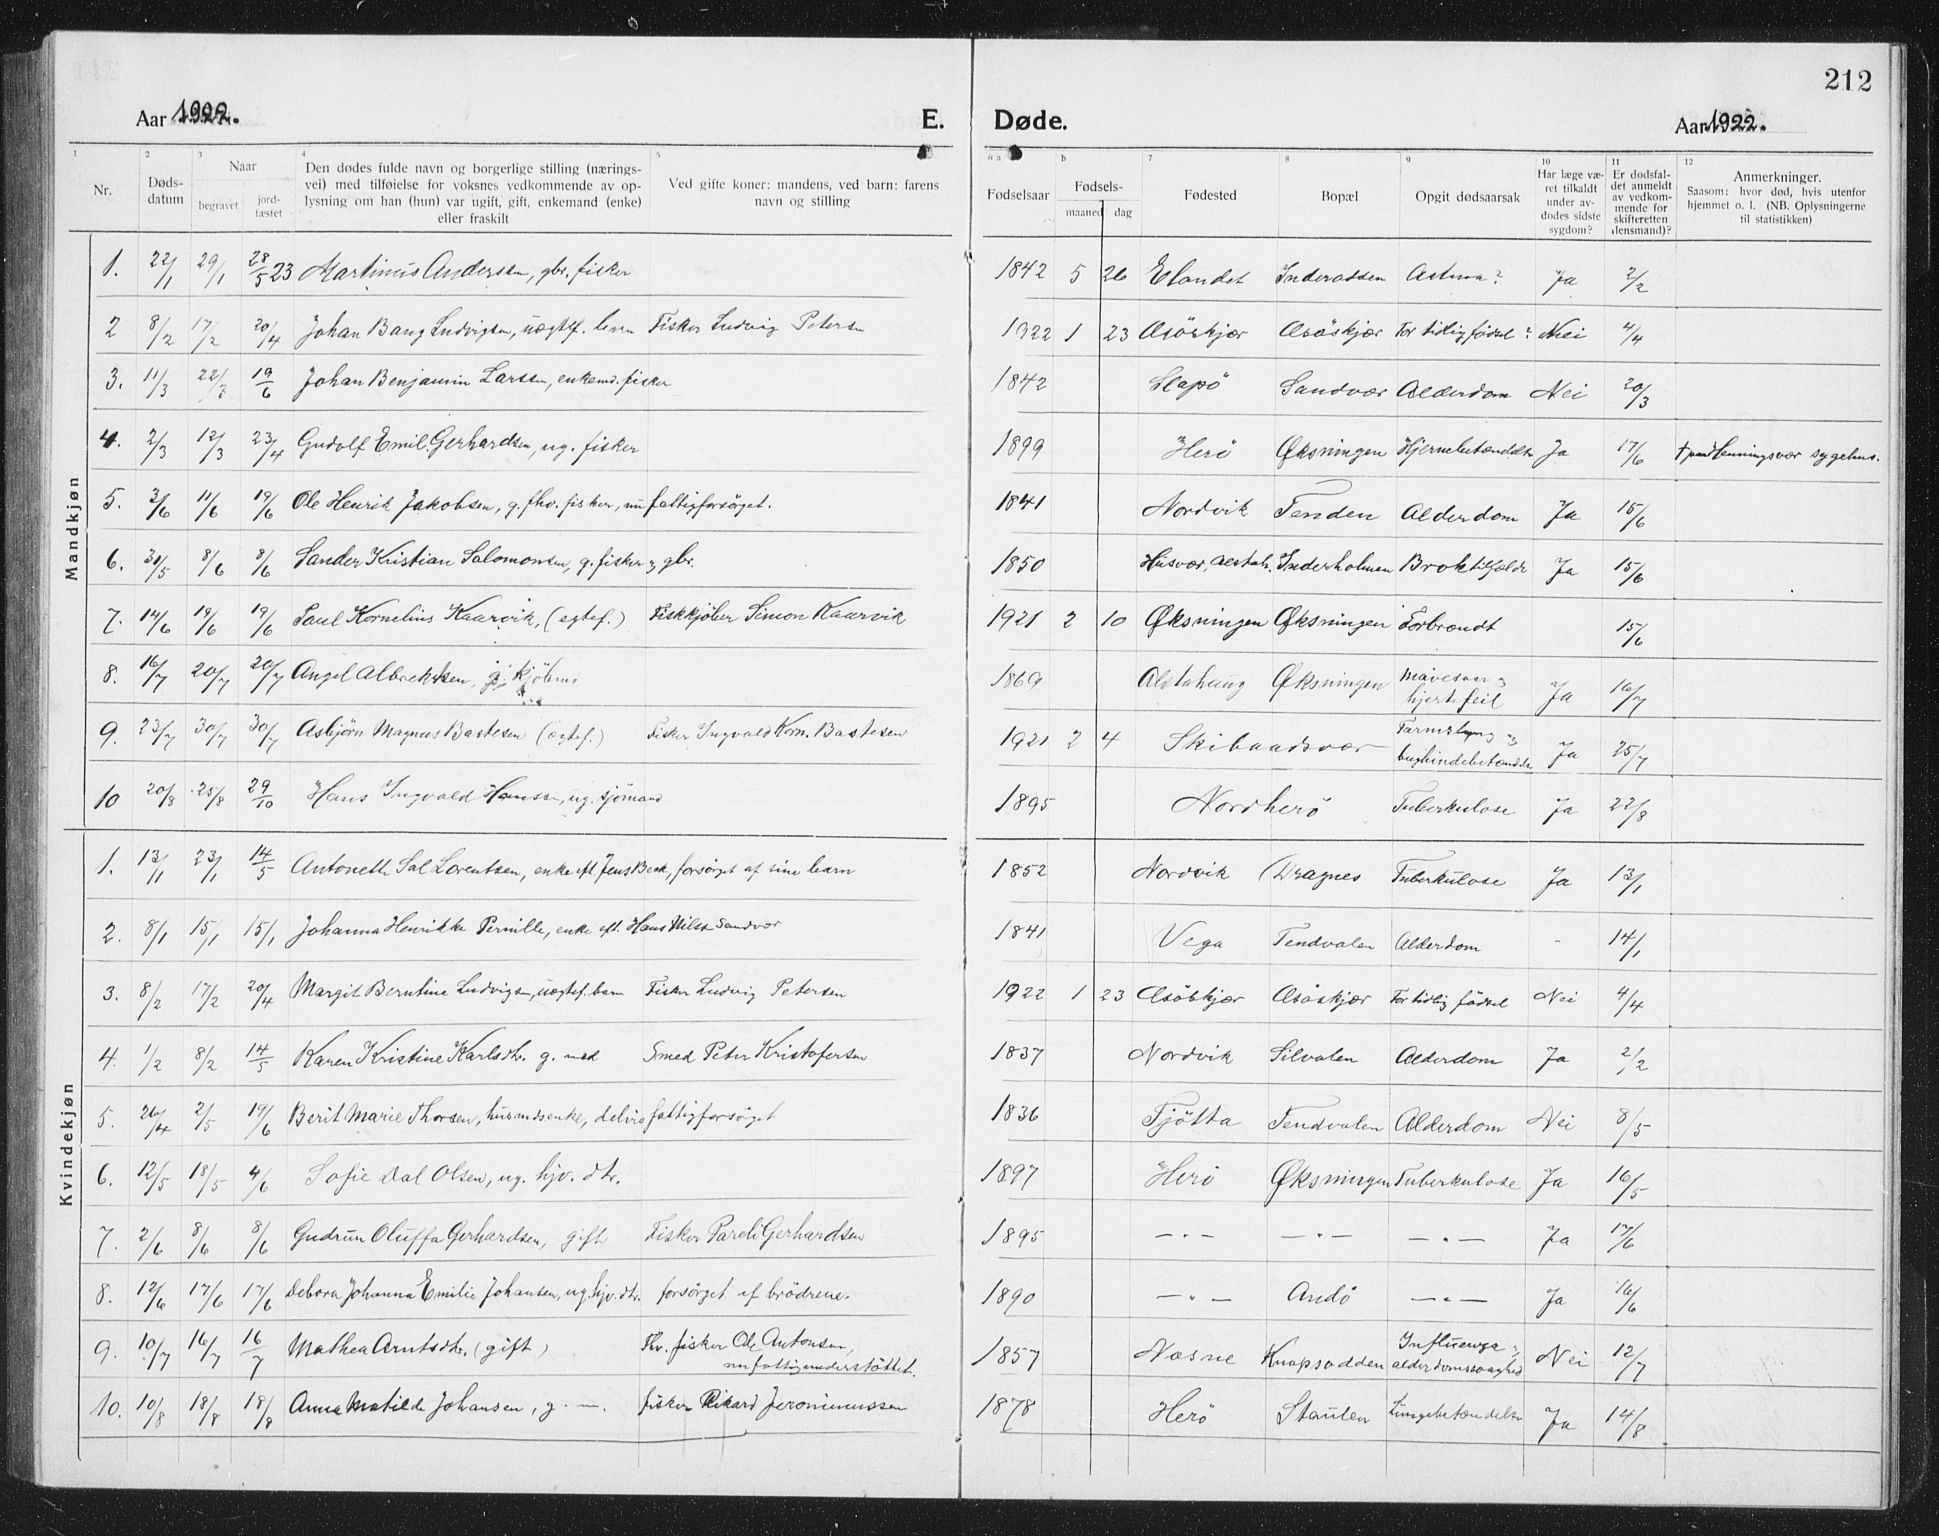 212
Aar 1922. E. Døde. Aar 1922.
1 2 3 4 5 6 a b 7 8 9 10 11 12
Nr. Døds-datum Naar begravet jord-fæstet Den dødes fulde navn og borgerlige stilling (nærings-vei) med tilføielse for voksnes vedkommende av op-lysning om han (hun) var ugift, gift, enkemand (enke) eller fraskilt Ved gifte koner: mandens, ved barn: farens navn og stilling Fødselsaar Fødsels-maaned dag Fødested Bopæl Opgit dødsaarsak Har læge væ-ret tilkaldt under av-dødes sidste sygdom? Er dødsfal-det anmeldt av vedkom-mende for skifteretten (lensmand)? Anmerkninger. Saasom: hvor død, hvis utenfor hjemmet o. l. (NB. Oplysningerne til statistikken)
Mandkjøn
1. 22/1 29/1 28/5 23 Martinus Anderssen, gbr. fisker 1842 5 26 Elandet Inderossen Astma? Ja 2/2
2 8/2 17/2 20/4 Johan Bang Ludvigsen, uægtef. barn Fisker Ludvig Petersen 1922 1 23 Æsöskjær Æsöskjær For tidlig födsel? Nei 4/4
3. 11/3 22/3 19/6 Johan Benjamin Larssen, enkemd. fisker 1842 Slapö Sandvær Alderdom Nei 20/3
4. 2/3 12/3 23/4 Gudolf Emil Gerhardsen, ug. fisker 1899 Herö Øksningen Hjernebetændelse Ja 17/6 † paa Henningsvær sygehus.
5. 3/6 11/6 19/6 Ole Henrik Jakobsen, g. fhv. fisker, nu fattigforsörget. 1841 Nordvik Tenden Alderdom Ja 15/6
6. 30/5 8/6 8/6 Sander Kristian Salomonsen, g. fisker og gbr. 1850 Husvær, Alstah. Inderholmen Broktilfælde Ja 15/6
7. 14/6 19/6 19/6 Paul Kornelius Kaarvik, (egtef.) Fiskkjöber Simon Kaarvik 1921 2 10 Øksningen Øksningen Forbrændt 15/6
8. 16/7 20/7 20/7 Angel Albrektsen, g. 1869 Alstahaug Øksningen Mavesaar og hjertefeil Ja 16/7
9. 23/7 30/7 30/7 Asbjørn Magnus Bastesen (ægtef.) Fisker Ingvald Korn. Bastesen 1921 2 4 Skibaadsvær Tarmslyng og bughindebetændelse Ja 25/7
10 20/8 25/8 29/10 Hans Ingvald Hanssen, ug. sjömand 1895 Nordherö Tuberkulose Ja 22/8
Kvindekjøn
1. 13/1 23/1 14/5 Antonette Sal Lorentsen, enke eft. Jens Beck, forsörget af sine barn 1852 Nordvik Dragnes Tuberkulose Ja 13/1
2. 8/1 15/1 15/1 Johanna Henrikke Pernille, enke eft. Hans Nilsen Sandvær 1841 Vega Tendvalen Alderdom - 14/1
3. 8/2 17/2 20/4 Margit Berntine Ludvigsen, uægtef. barn Fisker Ludvig Petersen 1922 1 23 Æsöskjær Æsöskjær For tidlig födsel Nei 4/4
4. 1/2 8/2 14/5 Karen Kristine Karlsdtr. g. med Smed Peter Kristofersen 1837 Nordvik Silvalen Alderdom Ja 2/2
5. 26/4 2/5 19/6 Berit Marie Thorsen, husmdsenke, delvis fattigforsörget 1836 Tjötta Tendvalen Alderdom Nei 8/5
6. 12/5 18/5 4/6 Sofie Dal Olsen, ug. hjv. dtr. 1897 Herö Øksningen Tuberkulose Ja 16/5
7. 2/6 8/6 8/6 Gudrun Oluffa Gerhardsen, gift Fisker Pareli Gerhardsen 1895 — " — — " — — " — Ja 17/6
8. 12/6 17/6 17/6 Debora Johanna Emilie Johansen, ug. hjv. dtr. forsörget af brödrene. 1890 — " — Andö — " — Ja 16/6
9. 10/7 16/7 16/7 Mathea Arntsdtr. (gift) Fhv. fisker Ole Antonsen, nu fattigunderstöttet. 1857 Næsne Knapsodden Influenza og alderdomssvaghed Nei 12/7
10. 10/8 18/8 18/8 Anna Matilde Johansen, g. —. fisker Rikard Jeronimussen 1878 Herö Staulen Lungebetændelse Ja 14/8